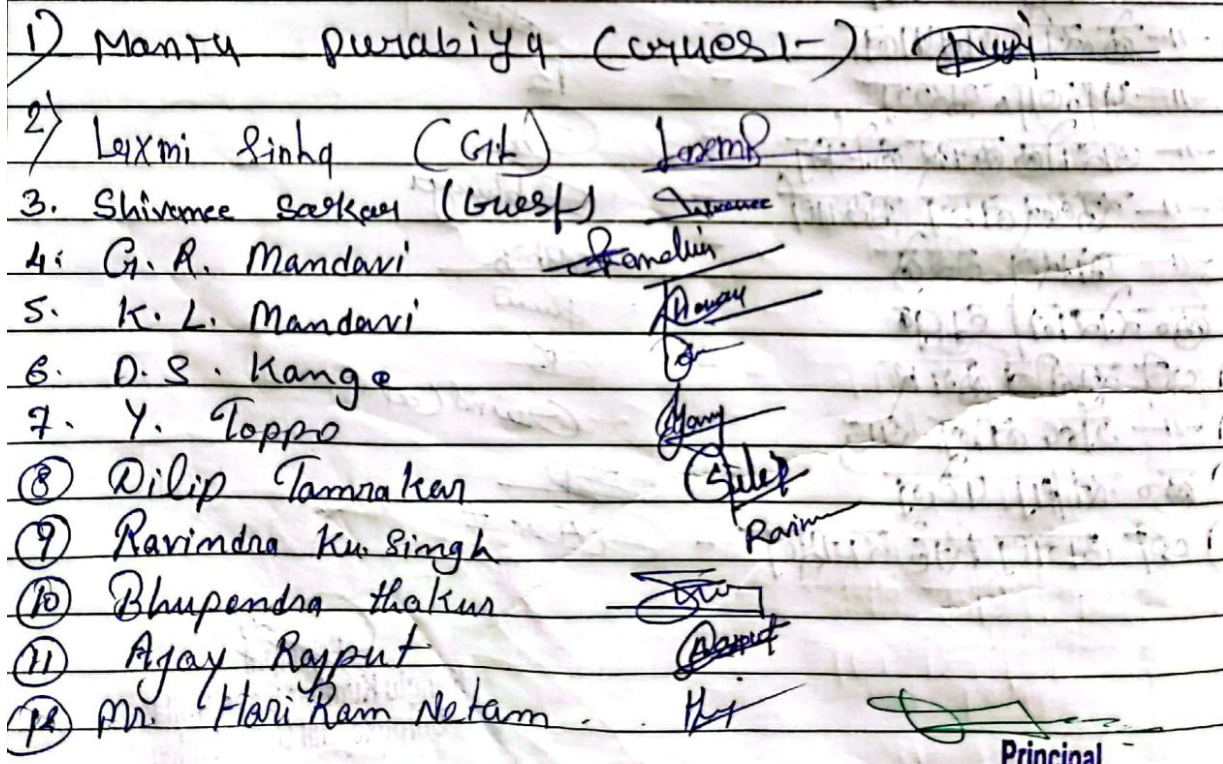 1) Manry Purabiya (Guest)
2) Laxmi Sinha (G.L)
3. Shivanee Sarkar (Guest) Shivanee
4. G. R. Mandavi
5. K. L. Mandavi
6. D. S. Kange
7. Y. Toppo
8 Dilip Tamrakar Dilip
9 Ravindra Ku. Singh Ravin
10 Bhupendra Thakur
11 Ajay Rajput
12 Mr. Hari Ram Netam.
Principal